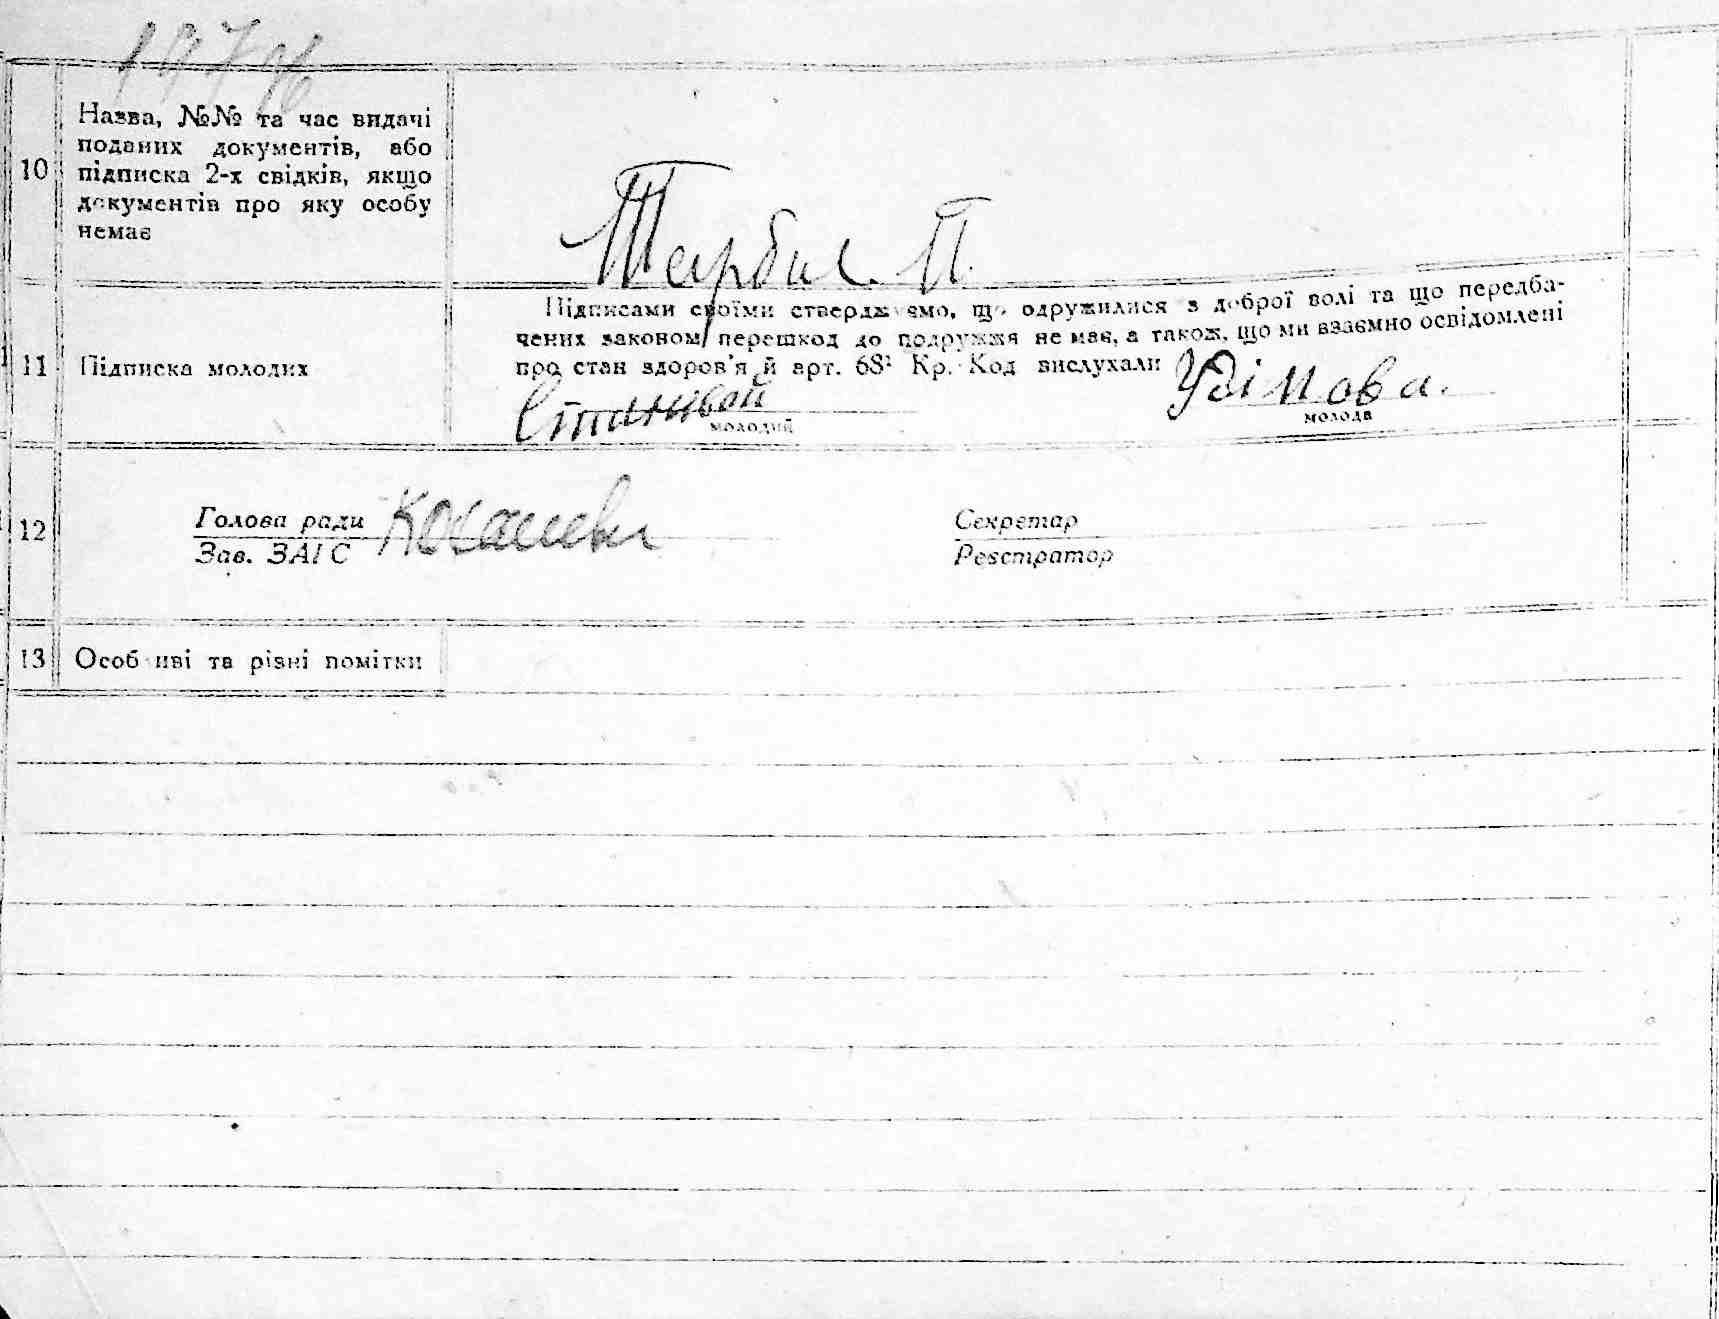 10
Назва, №№ та час видачі
поданих документів, або
підписка 2-х свідків, якщо
документів про яку особу
немає
11
Підписка молодих
Підписами своїми стверджуємо, що одружилися з доброї волі та що передба-
чених законом перешкод до подружжя не має, а також, що ми взаємно освідомлені
про стан здоров'я й арт. 68¹ Кр. Код вислухали
Удімова.
молодий
молода
12
Голова ради
Зав. ЗАГС
Секретар
Реєстратор
13
Особливі та різні помітки